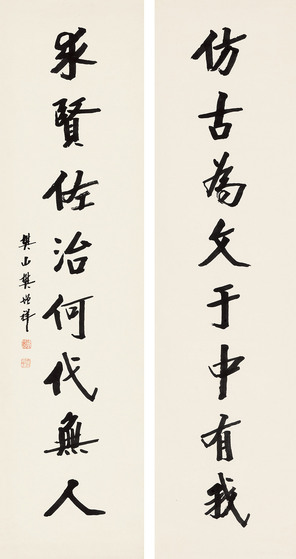 仿古為文于中有我
求賢佐治何代無人
樊山樊增祥